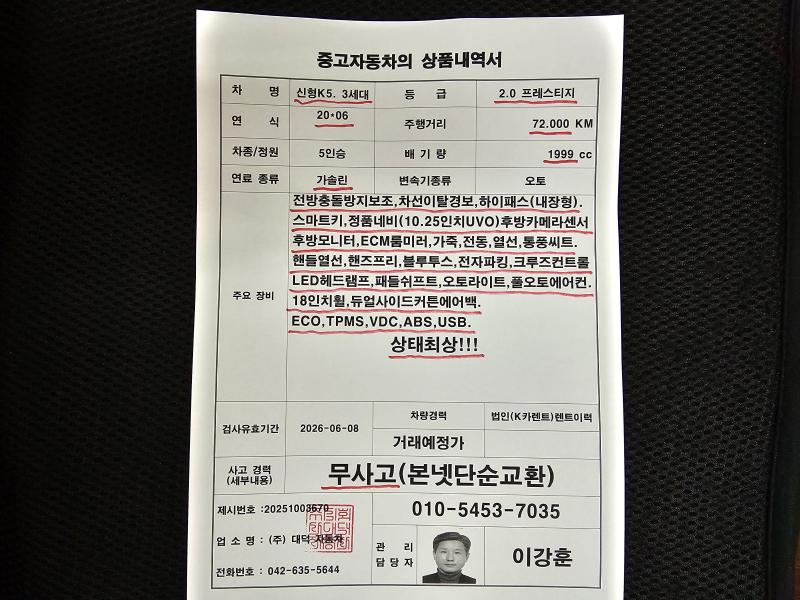 중고자동차의 상품내역서
차 명 신형K5. 3세대 등 급 2.0 프레스티지
연 식 20*06 주행거리 72.000 KM
차종/정원 5인승 배 기 량 1999 cc
연료 종류 가솔린 변속기종류 오토
주요 장비
전방충돌방지보조,차선이탈경보,하이패스(내장형).
스마트키,정품네비(10.25인치UVO)후방카메라센서
후방모니터,ECM룸미러,가죽,전동,열선,통풍씨트.
핸들열선,핸즈프리,블루투스,전자파킹,크루즈컨트롤
LED헤드램프,패들쉬프트,오토라이트,풀오토에어컨.
18인치휠,듀얼사이드커튼에어백.
ECO,TPMS,VDC,ABS,USB.
상태최상!!!
검사유효기간 2026-06-08 차량경력 법인(K카렌트)렌트이력
거래예정가
사고 경력
(세부내용)
무사고(본넷단순교환)
제시번호 :20251003670
010-5453-7035
업 소 명 : (주) 대덕 자동차
관 리
담 당 자
이강훈
전화번호 : 042-635-5644